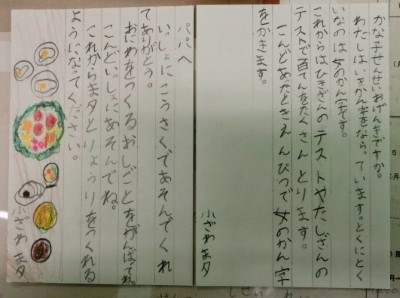 かな子せんせいおげんきですか。
わたしはいまかん字をならっています。とくにとく
いなのは女のかん字です。
これからはひきざんのテストやたしざんの
テストで百てんをたくさんとります。
こんどあたときえんぴつで女のかん字
をかきます。
小ざわま夕
パパへ
いっしょにこうさくであそんでくれ
てありがとう。
おにわをつくるおしごとをがんばてね
こんどいっしょにあそんでね。
これからま夕とりょうりをつくれる
ようになてください。
小ざわま夕